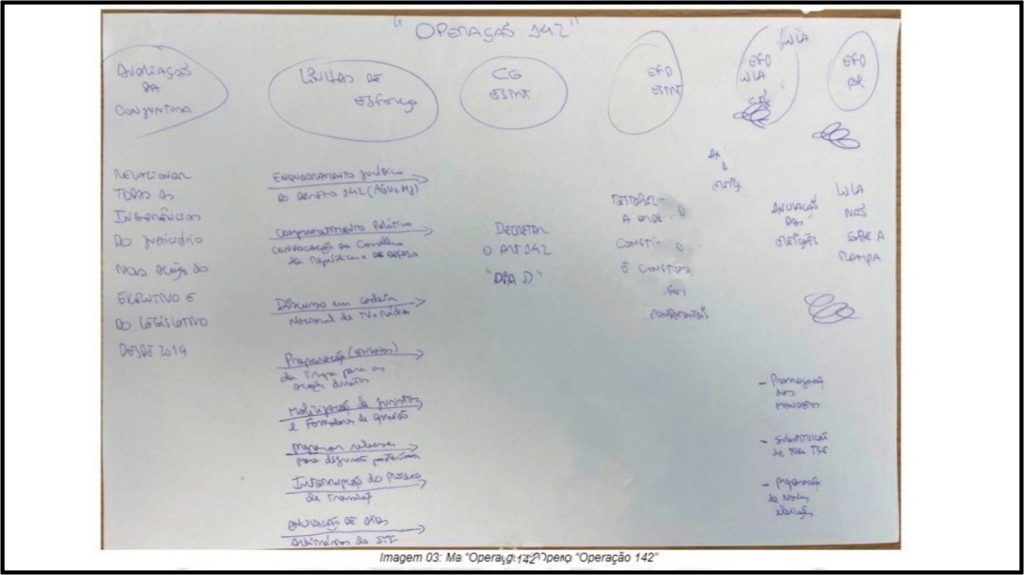 "OPERAÇÃO 142"
AVALIAÇÃO
DA
CONJUNTURA
RELACIONAR
TODAS AS
INGERÊNCIAS
DO JUDICIÁRIO
NAS AÇÕES DO
EXECUTIVO E
DO LEGISLATIVO
DESDE 2019
LINHAS DE
ESFORÇO
ENQUADRAMENTO JURÍDICO
DO DECRETO 142 (AGU e MJ)
COMPROMETIMENTO POLÍTICO
CONVOCAÇÃO do Conselho
da República e DE DEFESA
Discurso em cadeia
Nacional de TV e Rádio
Preparação
da Tropa para as
ações diretas
Mobilização de juristas
e Formadores de opinião
Preparar
para difusão posterior
Interrupção do Processo
de Transição
ANULAÇÃO DE ATOS
Arbitrários do STF
CG
ESTRT
DECRETAR
O ART 142
"DIA D"
EFD
ESTRT
A ORDEM
CONST
E
FUNDAMENTAIS
LULA
EFD
ANULAÇÃO
DAS
ELEIÇÕES
- Prorrogação
dos
MANDATOS
- SUBSTITUIÇÃO
de todo TSE
- Preparação
de Novas
eleições
EFD
LULA
NÃO
SOBE A
RAMPA
Imagem 03: Ma "Opera "Operação 142"